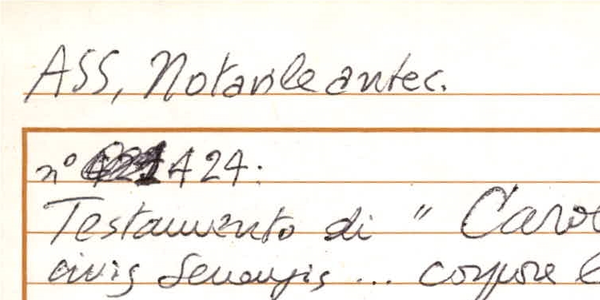 ASS, Notarile antec.
n° 424:
Testamento di "
civis Senensis ... corpore